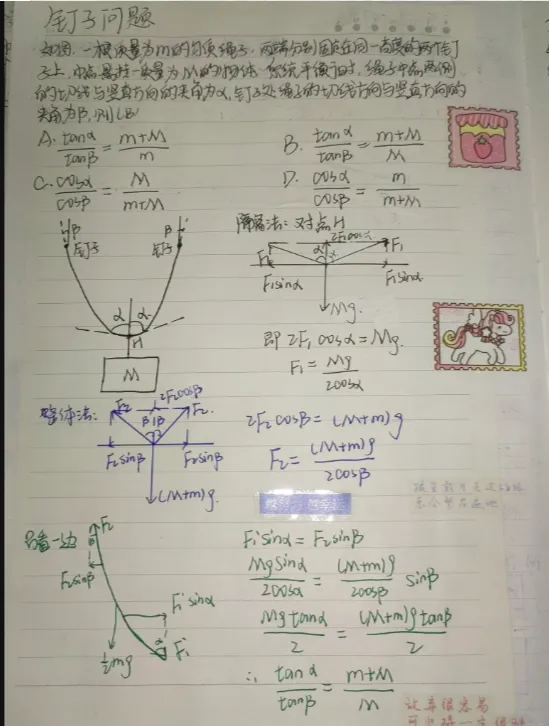 钉子问题
如图,一根质量为m的匀质绳子,两端分别固定在同一高度的两个钉
子上,中点悬挂一质量为M的物体.系统平衡时,绳子中点两侧
的切线与竖直方向的夹角为α,钉子处绳子的切线方向与竖直方向的
夹角为β,则(B)
A. tanα/tanβ = m+M/m B. tanα/tanβ = m+M/M
C. cosα/cosβ = M/m+M D. cosα/cosβ = m/m+M
β β
钉子 钉子
α α
H
M
隔离法:对点H
2F₁cosα
F₁ α α F₁
F₁sinα F₁sinα
Mg.
即 2F₁cosα = Mg.
F₁ = Mg/2cosα
整体法:
F₂ 2F₂cosβ F₂
β β
F₂sinβ F₂sinβ
(M+m)g.
2F₂cosβ = (M+m)g
F₂ = (M+m)g/2cosβ
只看一边
F₂
β
F₂sinβ
F₁'sinα
α F₁'
½mg
F₁'sinα = F₂sinβ
Mgsinα/2cosα = (M+m)g/2cosβ sinβ
Mgtanα/2 = (M+m)gtanβ/2
∴ tanα/tanβ = m+M/M
放弃很容易